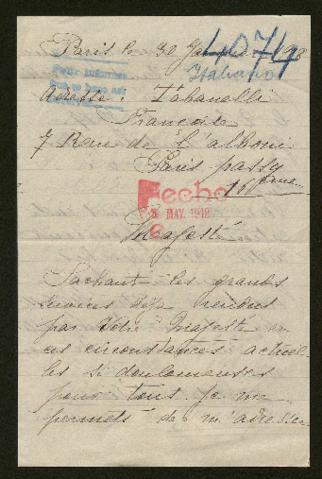 Paris le 30 Janvier 19
4074
Italiano
Adresse: Tabanelli
Françoise
7 Rue de l'alboni
Paris passy
16ème
Fecho
MAY. 1918
Majesté
Sachant les grands
services déjà rendus
par Votre Majesté en
ces circonstances actuel
les si douloureuses
pour tous je me
permets de m'adresser